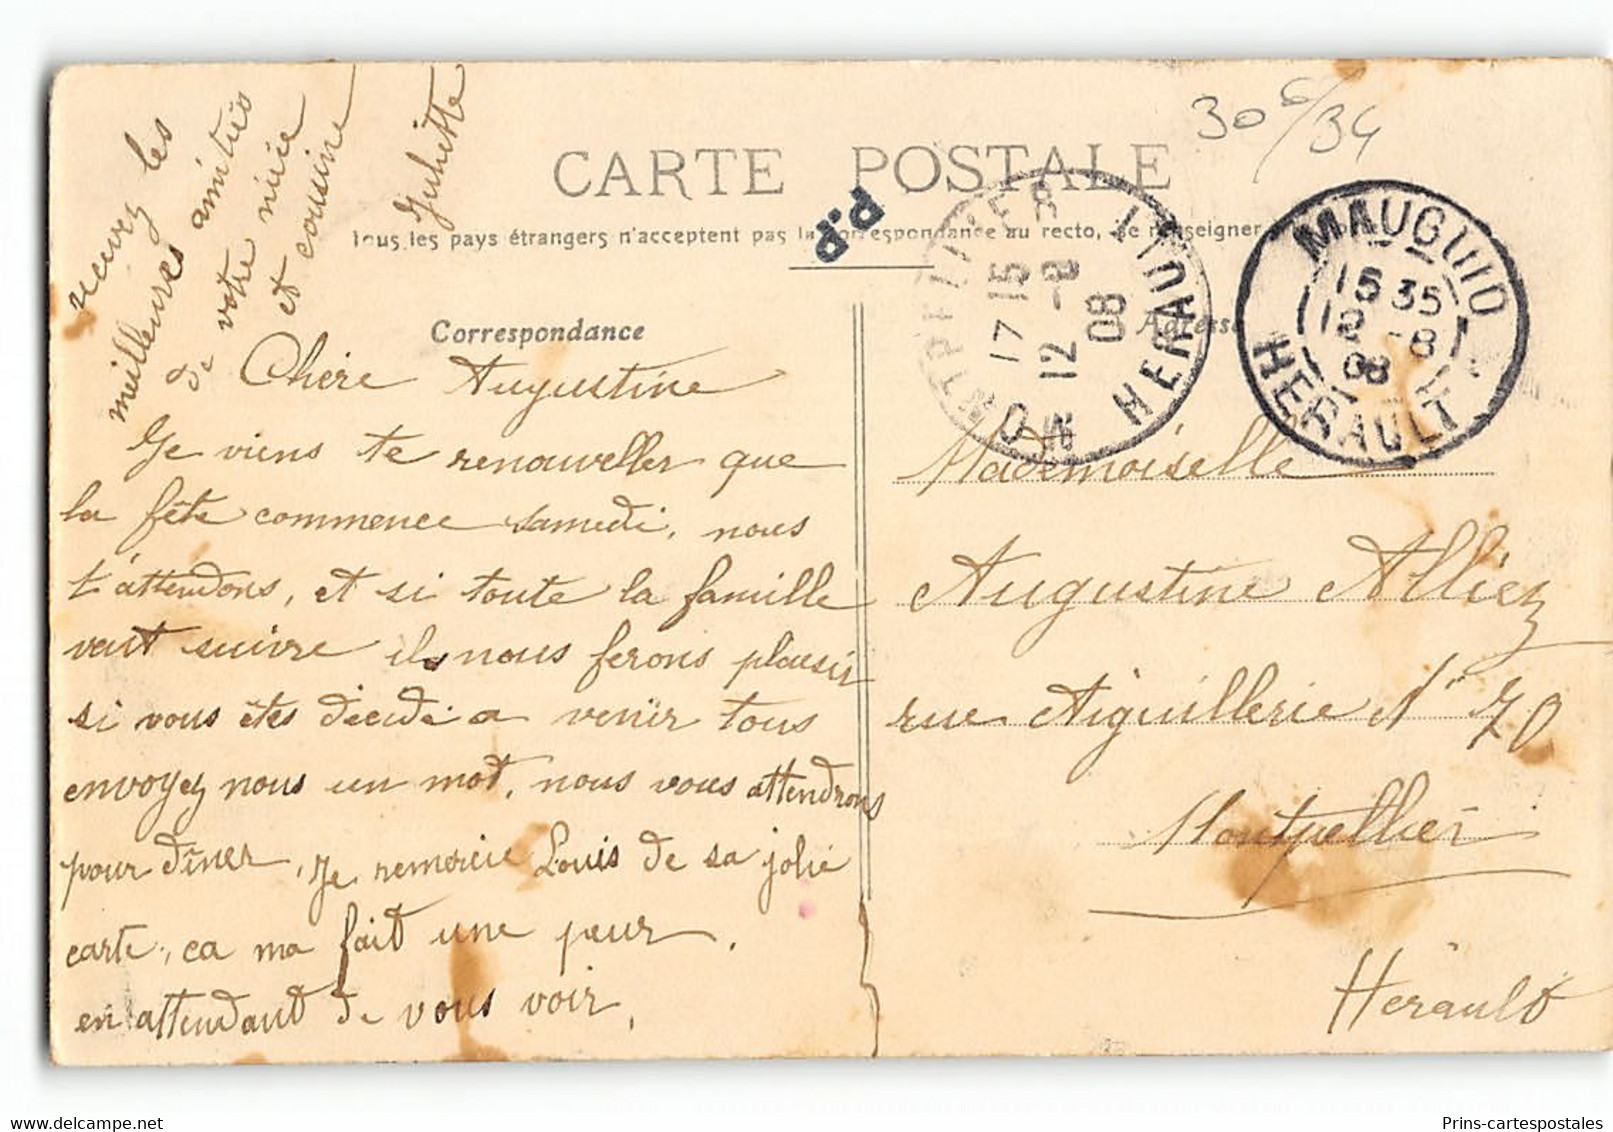 30 6/34
CARTE POSTALE
d.d
d.d
Tous les pays étrangers n'acceptent pas la correspondance au recto, se renseigner
Correspondance
Adresse
MONTPELLIER
17 15
12 -8
08
HERAULT
MAUGUIO
15 35
12 -8
08
HERAULT
Chère Augustine
Je viens te renouveller que
la fête commence samedi, nous
t'attendons, et si toute la famille
veut suivre ils nous ferons plaisir
si vous êtes décidé a venir tous
envoyez nous un mot, nous vous attendrons
pour dîner, Je remercie Louis de sa jolie
carte, ca ma fait une peur,
en attendant de vous voir,
recevez les
meilleures amitiés
de votre nièce
et cousine
Juliette
Mademoiselle
Augustine Alliez
rue Aiguillerie N° 70
Montpellier
Hérault
Prins-cartespostales